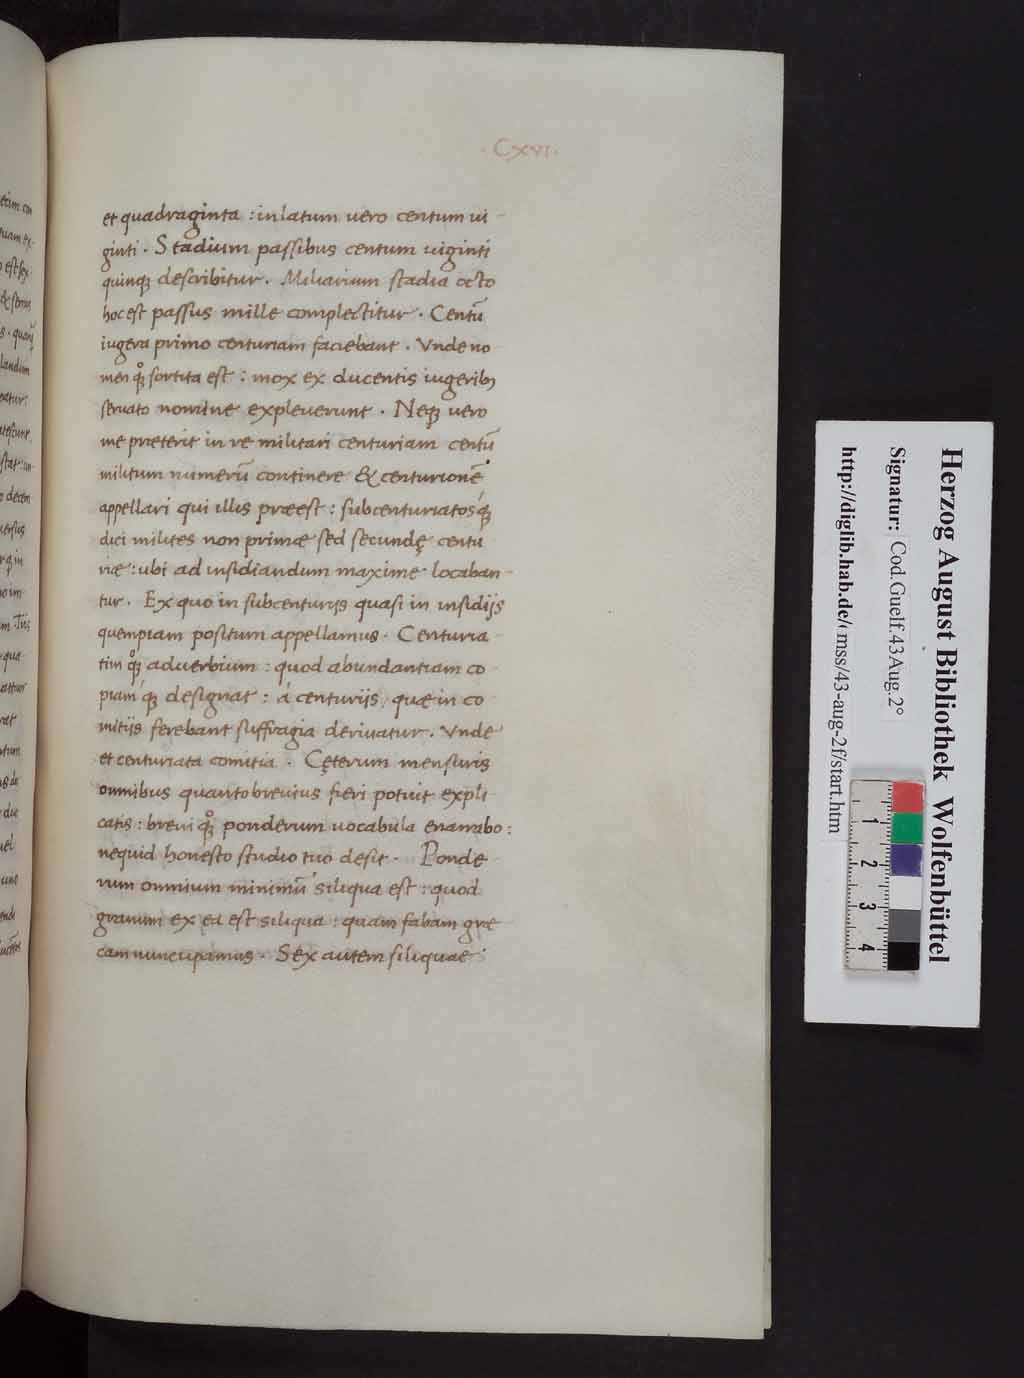 · CXVI ·
et quadraginta : in latum uero centum ui-
ginti . Stadium passibus centum uiginti
quinq; describitur . Miliarium stadia octo
hoc est passus mille complectitur . Centū
iugera primo centuriam faciebant . Vnde no
men qͦ; sortita est : mox ex ducentis iugeribȝ
seruato nomine expleuerunt . Neq; uero
me præterit in re militari centuriam centū
militum numerū continere & centurionē
appellari qui illis præest : subcenturiatosq́;
dici milites non primæ sed secundę centu
riæ : ubi ad insidiandum maxime locaban-
tur . Ex quo in subcenturijs quasi in insidijs
quempiam positum appellamus . Centuria-
tim qͦ; aduerbium : quod abundantiam co-
piamq́; designat : á centurijs, quæ in co-
mitijs ferebant suffragia deriuatur . Vnde
et centuriata comitia . Cęterum mensuris
omnibus quanto breuius fieri potuit expli-
catis : breui qͦ; ponderum uocabula enarrabo :
nequid honesto studio tuo desit . Ponde-
rum omnium minimū siliqua est : quod
granum ex ea est siliqua : quam fabam græ-
cam nuncupamus . Sex autem siliquae :
Herzog August Bibliothek Wolfenbüttel
Signatur: Cod. Guelf. 43 Aug. 2°
http://diglib.hab.de/mss/43-aug-2f/start.htm
1
2
3
4